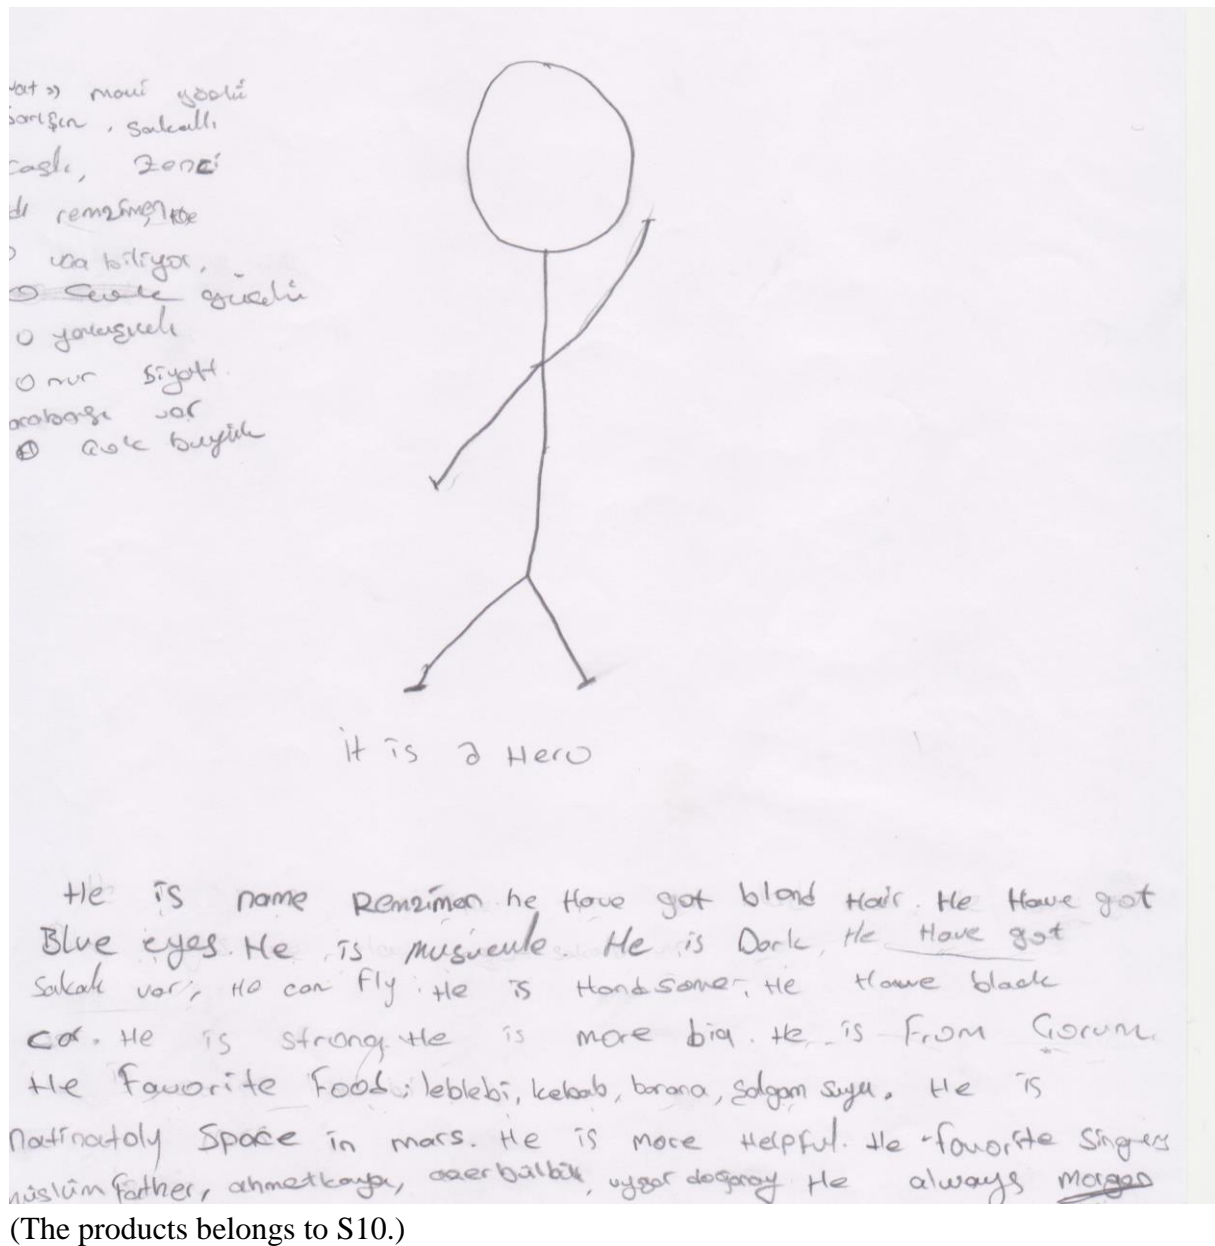 mavi gözlü
sarışın, sakallı
kaslı, zenci
remziman
uça biliyor,
güçlü
O yakışıklı
Onur siyah
arabası var
Çok büyük
it is a Hero
He is name Remziman he Have got blond Hair. He Have got
Blue eyes. He is musucule He is Dark. He Have got
Sakalı var, He can Fly. He is Handsome, He Have black
car. He is strong He is more big. He is From Çorum.
He Favorite Food: leblebi, kebab, borana, şalgam suyu. He is
natinatoly Space in mars. He is more Helpful. He favorite Singers
müslüm father, ahmetkaya, azer bülbül, uygar doğanay He always
(The products belongs to S10.)